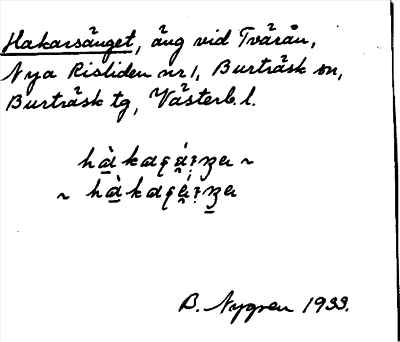 Hakarsänget, äng vid Tvärån,
Nya Risliden nr 1, Burträsk sn,
Burträsk tg, Västerb. l.
B. Nygren 1933.